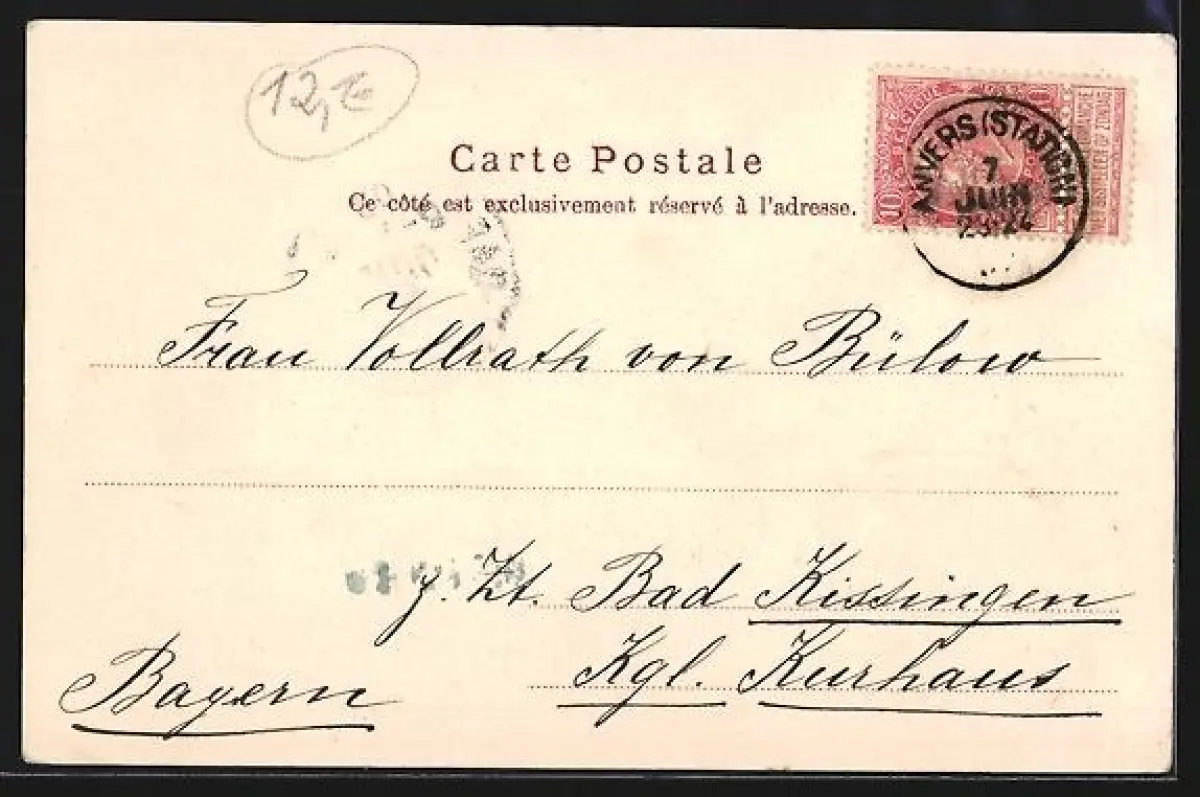 12,€
Carte Postale
Ce côté est exclusivement réservé à l'adresse.
BELGIQUE
10
NIET BESTELLEN OP ZONDAG
ANVERS (STATION)
7
JUIN
Frau Vollrath von Bülow
z. Zt. Bad Kissingen
Kgl. Kurhaus
Bayern